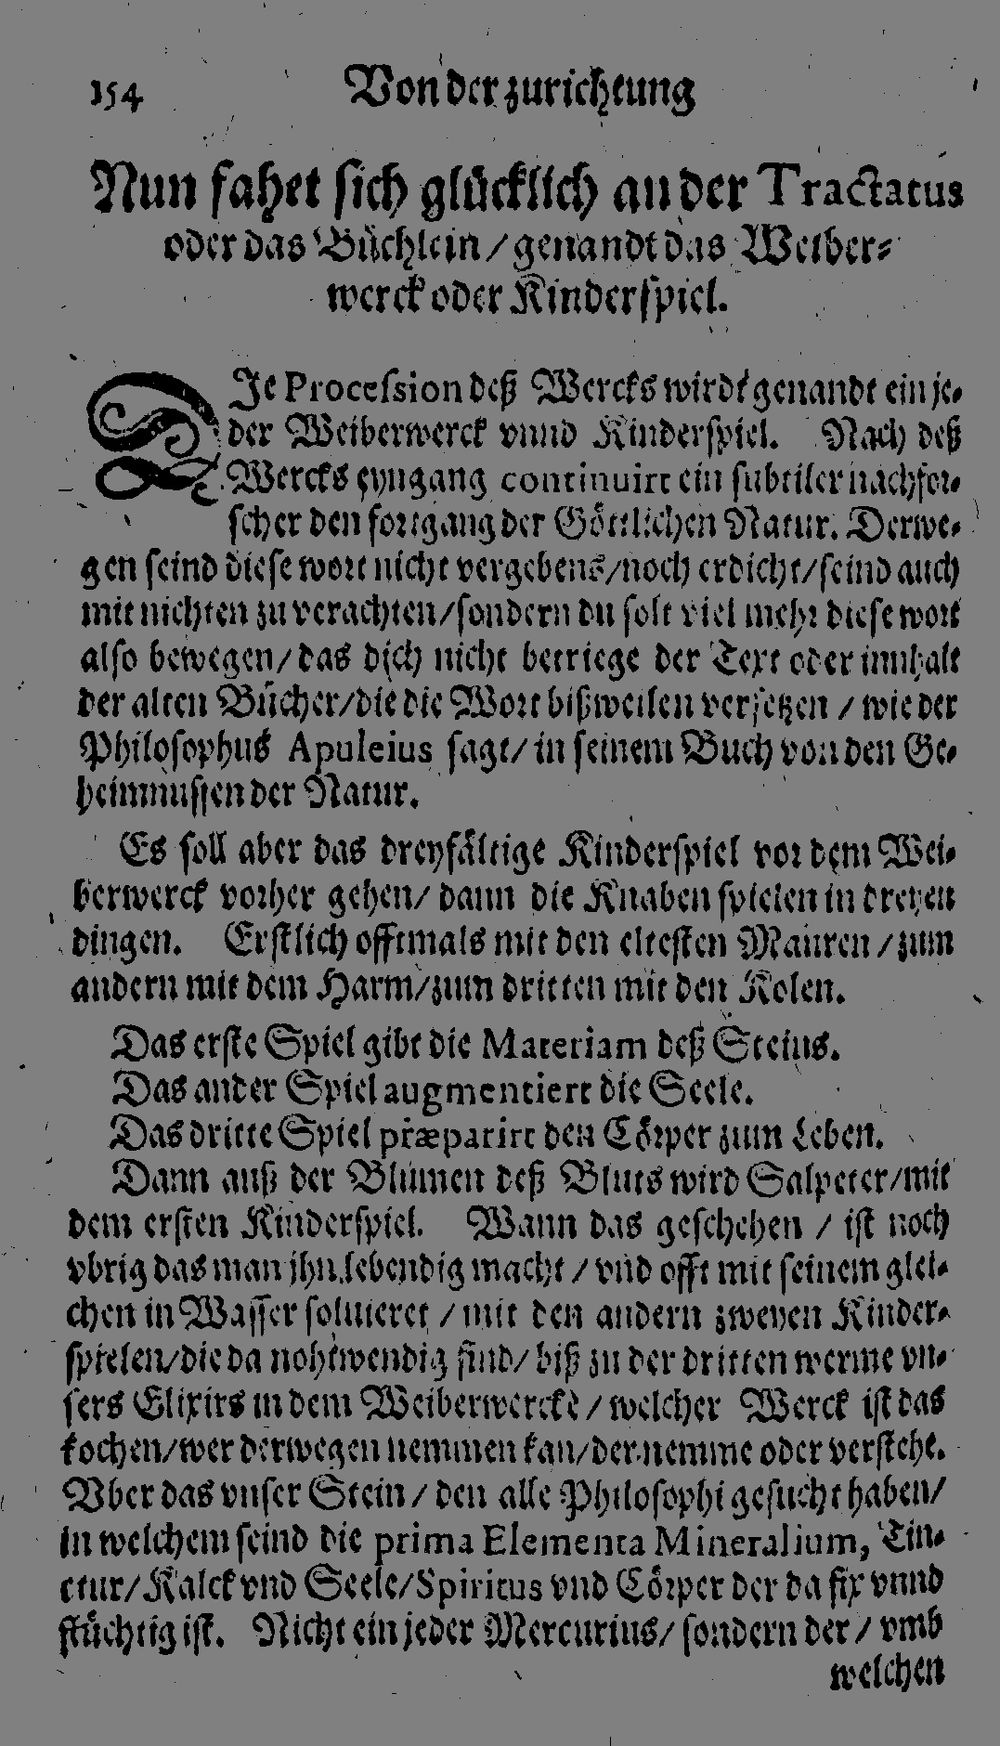 154 Von der zurichtung
Nun fahet sich glücklich an der Tractatus
oder das Büchlein / genandt das Weiber-
werck oder Kinderspiel.
DIe Procession deß Wercks wirdt genandt ein je-
der Weiberwerck vnnd Kinderspiel. Nach deß
Wercks eyngang continuirt ein subtiler nachfor-
scher den fortgang der Göttlichen Natur. Derwe-
gen seind diese wort nicht vergebens/noch erdicht/seind auch
mit nichten zu verachten/sondern du solt viel mehr diese wort
also bewegen/das dich nicht betriege der Text oder innhalt
der alten Bücher/die die Wort bißweilen versetzen / wie der
Philosophus Apuleius sagt/in seinem Buch von den Ge-
heimnussen der Natur.
Es soll aber das dreyfältige Kinderspiel vor dem Wei-
berwerck vorher gehen/ dann die Knaben spielen in dreyen
dingen. Erstlich offtmals mit den eltesten Mauren / zum
andern mit dem Harm/zum dritten mit den Kolen.
Das erste Spiel gibt die Materiam deß Steins.
Das ander Spiel augmentiert die Seele.
Das dritte Spiel præparirt den Cörper zum Leben.
Dann auß der Blumen deß Bluts wird Salpeter/mit
dem ersten Kinderspiel. Wann das geschehen / ist noch
vbrig das man jhn lebendig macht / vnd offt mit seinem glei-
chen in Wasser soluieret / mit den andern zweyen Kinder-
spielen/die da nohtwendig sind/ biß zu der dritten werme vn-
sers Elixirs in dem Weiberwercke / welcher Werck ist das
kochen/wer derwegen nemmen kan/der nemme oder verstehe.
Vber das vnser Stein / den alle Philosophi gesucht haben/
in welchem seind die prima Elementa Mineralium, Tin-
ctur/ Kalck vnd Seele/Spiritus vnd Cörper der da fix vnnd
flüchtig ist. Nicht ein jeder Mercurius/ sondern der / vmb
welchen